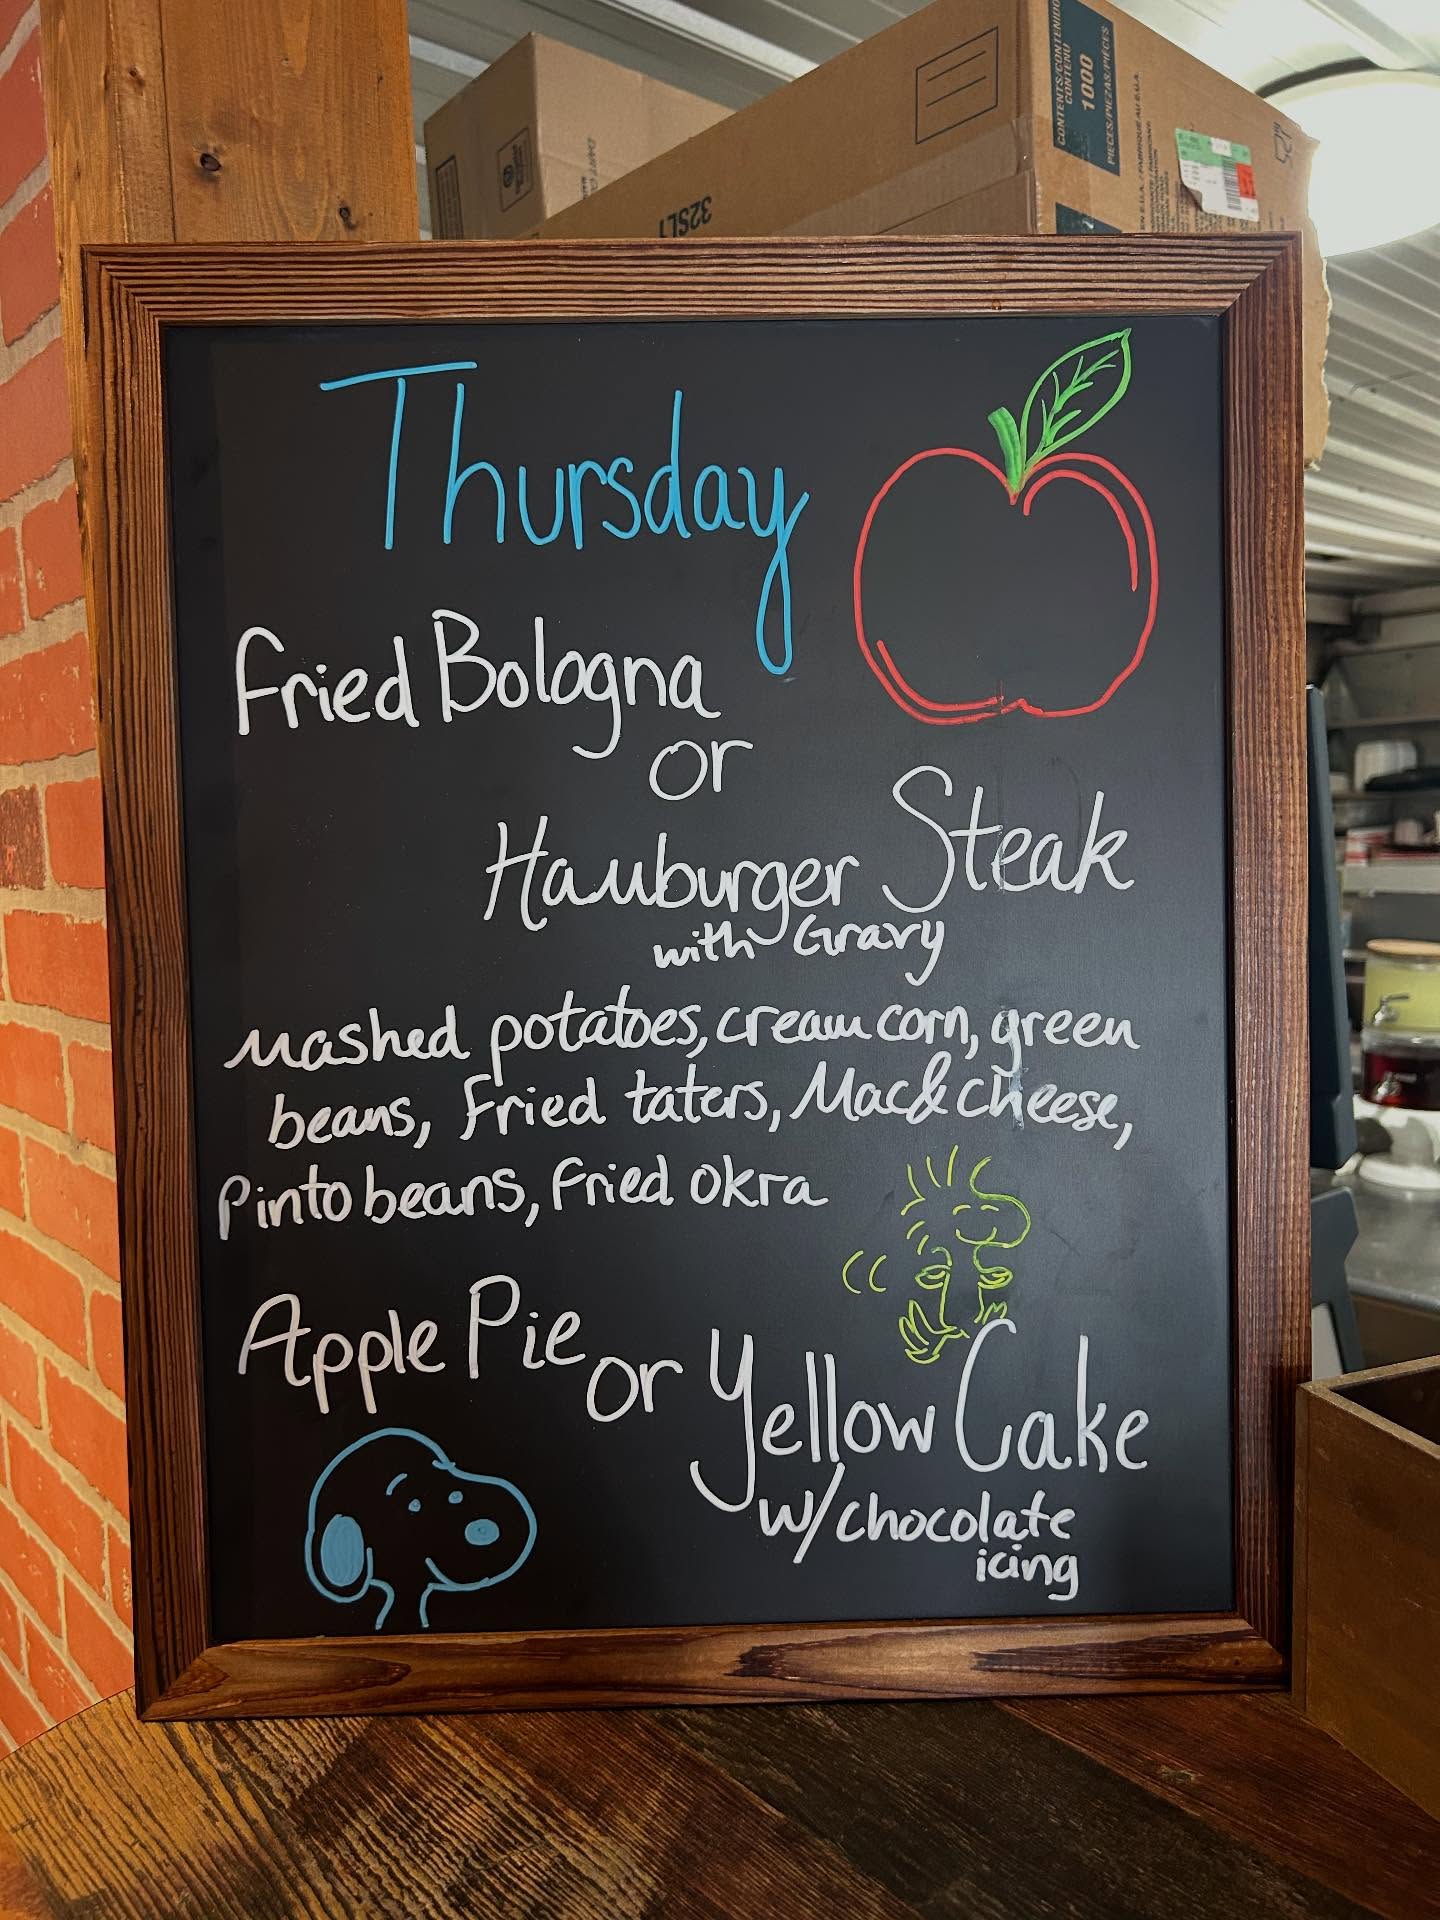 CONTENTS/CONTENIDO
CONTENU
1000
PIECES/PIEZAS/PIÈCES
32SL1
Thursday
Fried Bologna
or
Hamburger Steak
with Gravy
Mashed potatoes, cream corn, green
beans, Fried taters, Mac & cheese,
Pinto beans, Fried okra
Apple Pie
or Yellow Cake
w/chocolate
icing